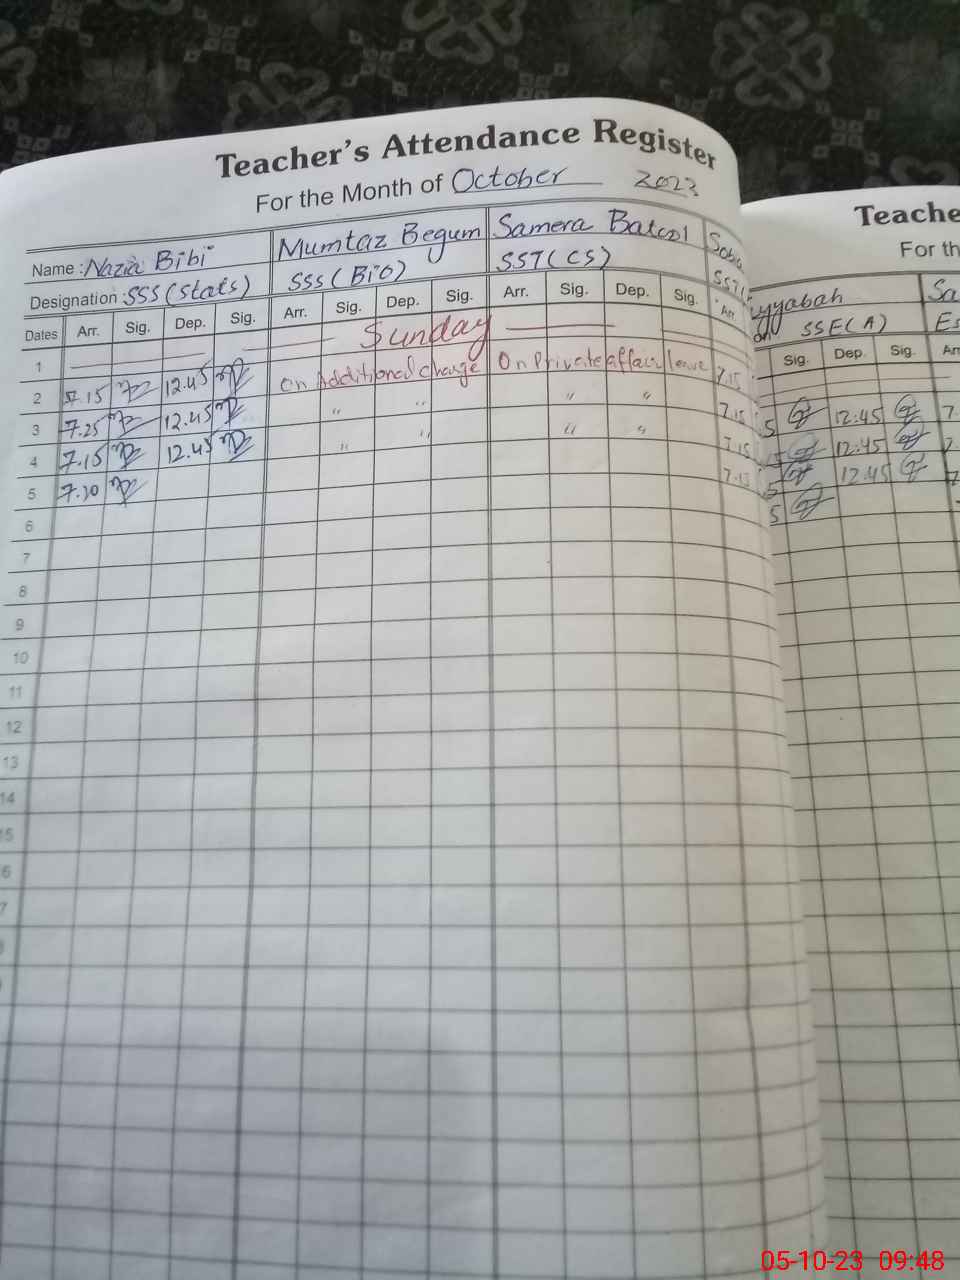 Teacher's Attendance Register
For the Month of October 2023
Name : Nazia Bibi Mumtaz Begum Samera Batool
Designation SSS (Stats) SSS (Bio) SST (CS)
Dates Arr. Sig. Dep. Sig. Arr. Sig. Dep. Sig. Arr. Sig. Dep. Sig. Arr.
1 Sunday
2 7.15 12.45 On Additional charge On Private affair leave 7.15
3 7.25 12.45 " " " " 7.15
4 7.15 12.45 " " " " 7.15
5 7.10 7.15
6
7
8
9
10
11
12
13
14
15
6
7
Teache
For th
yyabah Sa
SSE(A) Es
Sig. Dep. Sig. Arr
5 12:45 7.
15 12:45 7
5 12:45 7
5
05-10-23 09:48